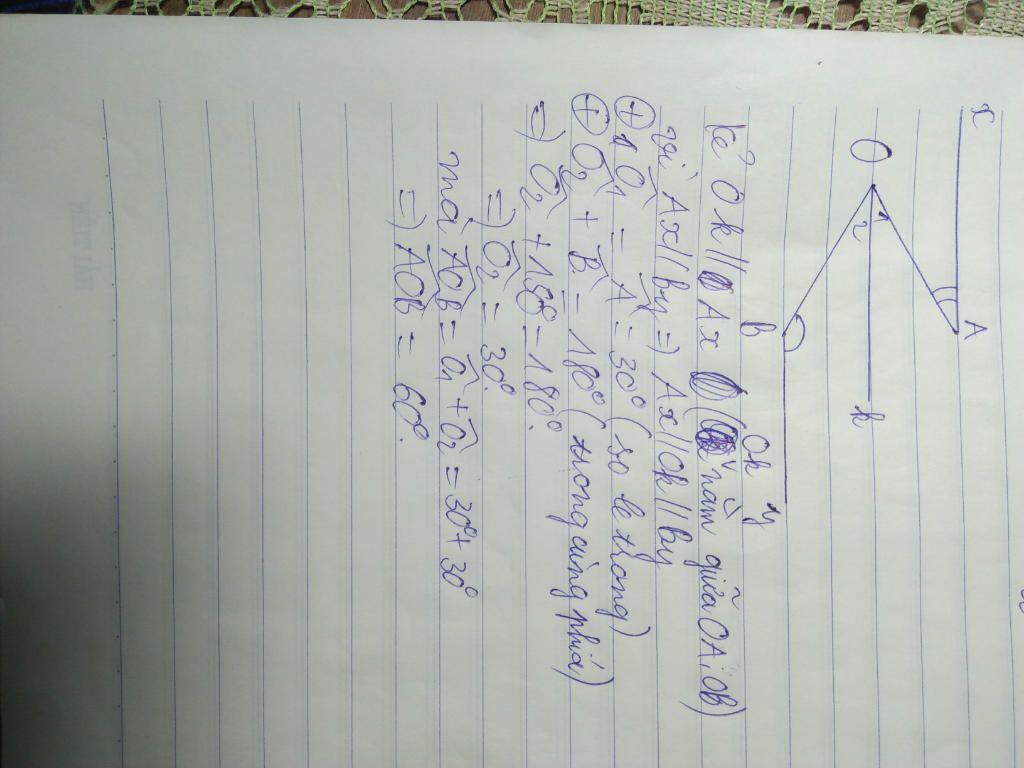 x
A
O
1
2
k
B
y
kẻ Ok // Ax (Ok nằm giữa OA; OB)
vì Ax // By => Ax // Ok // By
+ Ô1 = Â = 30° (so le trong)
+ Ô2 + B̂ = 180° (trong cùng phía)
=> Ô2 + 150 = 180°.
=> Ô2 = 30°.
mà AÔB = Ô1 + Ô2 = 30° + 30°
=> AÔB = 60°.